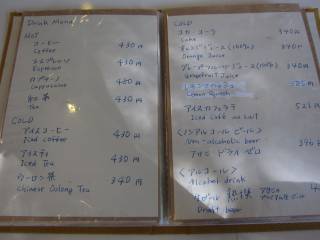 Drink Menu
HOT
コーヒー 430円
Coffee
エスプレッソ 430円
Espresso
カプチーノ 480円
Cappuccino
紅茶 430円
Tea
COLD
アイスコーヒー 430円
Iced coffee
アイスティ 430円
Iced Tea
ウーロン茶 340円
Chinese Oolong Tea
COLD
コカ コーラ 340円
Coke
オレンジジュース(100%) 340円
Orange Juice
グレープフルーツジュース(100%) 340円
Grapefruit Juice
レモンスカッシュ
Lemon Squash
アイスカフェラテ
Iced Café au lait
〈ノンアルコールビール〉
Non-alcoholic beer
アサヒ ドライゼロ
〈アルコール〉
Alcohol drink
生ビール
Draft beer